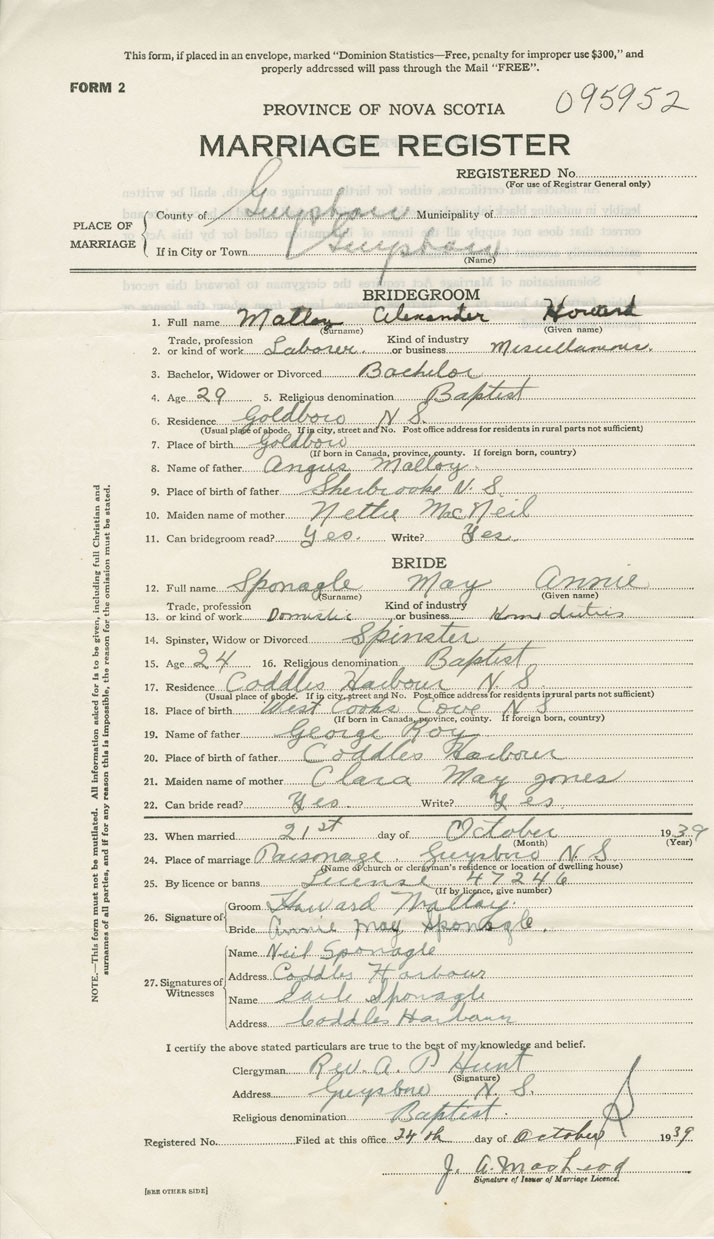 This form, if placed in an envelope, marked "Dominion Statistics—Free, penalty for improper use $300," and
properly addressed will pass through the Mail "FREE".
FORM 2
095952
PROVINCE OF NOVA SCOTIA
MARRIAGE REGISTER
REGISTERED No.
(For use of Registrar General only)
PLACE OF MARRIAGE
County of Municipality of
If in City or Town
(Name)
BRIDEGROOM
1. Full name Malloy Alexander Howard
(Surname) (Given name)
2. Trade, profession or kind of work Laborer. Kind of industry or business Miscellaneous.
3. Bachelor, Widower or Divorced Bachelor
4. Age 29 5. Religious denomination Baptist
6. Residence Goldboro N S.
(Usual place of abode. If in city, street and No. Post office address for residents in rural parts not sufficient)
7. Place of birth Goldboro
(If born in Canada, province, county. If foreign born, country)
8. Name of father Angus Malloy.
9. Place of father Sherbrooke N. S.
10. Maiden name of mother Nettie MacNeil
11. Can bridegroom read? Yes. Write? Yes.
BRIDE
12. Full name Sponagle May Annie
(Surname) (Given name)
13. Trade, profession or kind of work Domestic Kind of industry or business Home duties
14. Spinster, Widow or Divorced Spinster
15. Age 24 16. Religious denomination Baptist
17. Residence Coddles Harbour N. S.
(Usual place of abode. If in city, street and No. Post office address for residents in rural parts not sufficient)
18. Place of birth West Cooks Cove N S
(If born in Canada, province, county. If foreign born, country)
19. Name of father George Roy
20. Place of father Coddles Harbour
21. Maiden name of mother Clara May Jones
22. Can bride read? Yes. Write? Yes.
23. When married 21st day of October 1939
(Month) (Year)
24. Place of marriage Parsonage. Guysboro N S
(Name of church or clergyman's residence or location of dwelling house)
25. By licence or banns License 47246
(If by licence, give number)
26. Signature of
Groom Howard Malloy.
Bride Annie May Sponagle.
27. Signatures of Witnesses
Name Neil Sponagle
Address Coddles Harbour
Name Earle Sponagle
Address Coddles Harbour
I certify the above stated particulars are true to the best of my knowledge and belief.
Clergyman Rev. A. P Hunt
(Signature)
Address Guysboro N S.
Religious denomination Baptist.
Registered No. Filed at this office 24th day of October 1939
J. A. MacLeod
Signature of Issuer of Marriage Licence.
[SEE OTHER SIDE]
NOTE.—This form must not be mutilated. All information asked for is to be given, including full Christian and
surnames of all parties, and if for any reason this is impossible, the reason for the omission must be stated.